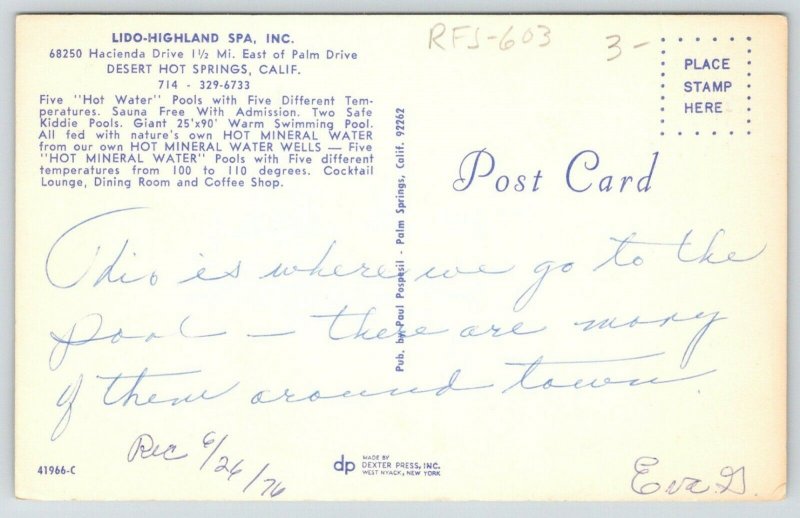 LIDO-HIGHLAND SPA, INC.
68250 Hacienda Drive 1½ Mi. East of Palm Drive
DESERT HOT SPRINGS, CALIF.
714 - 329-6733
Five "Hot Water" Pools with Five Different Tem-
peratures. Sauna Free With Admission. Two Safe
Kiddie Pools. Giant 25'x90' Warm Swimming Pool.
All fed with nature's own HOT MINERAL WATER
from our own HOT MINERAL WATER WELLS — Five
"HOT MINERAL WATER" Pools with Five different
temperatures from 100 to 110 degrees. Cocktail
Lounge, Dining Room and Coffee Shop.
RFS-603
3-
PLACE
STAMP
HERE
Post Card
Pub. by Paul Pospesil - Palm Springs, Calif. 92262
This is where we go to the
pool — there are many
of them around town.
Rec 6/26/76
Eva G.
41966-C
dp
MADE BY
DEXTER PRESS, INC.
WEST NYACK, NEW YORK